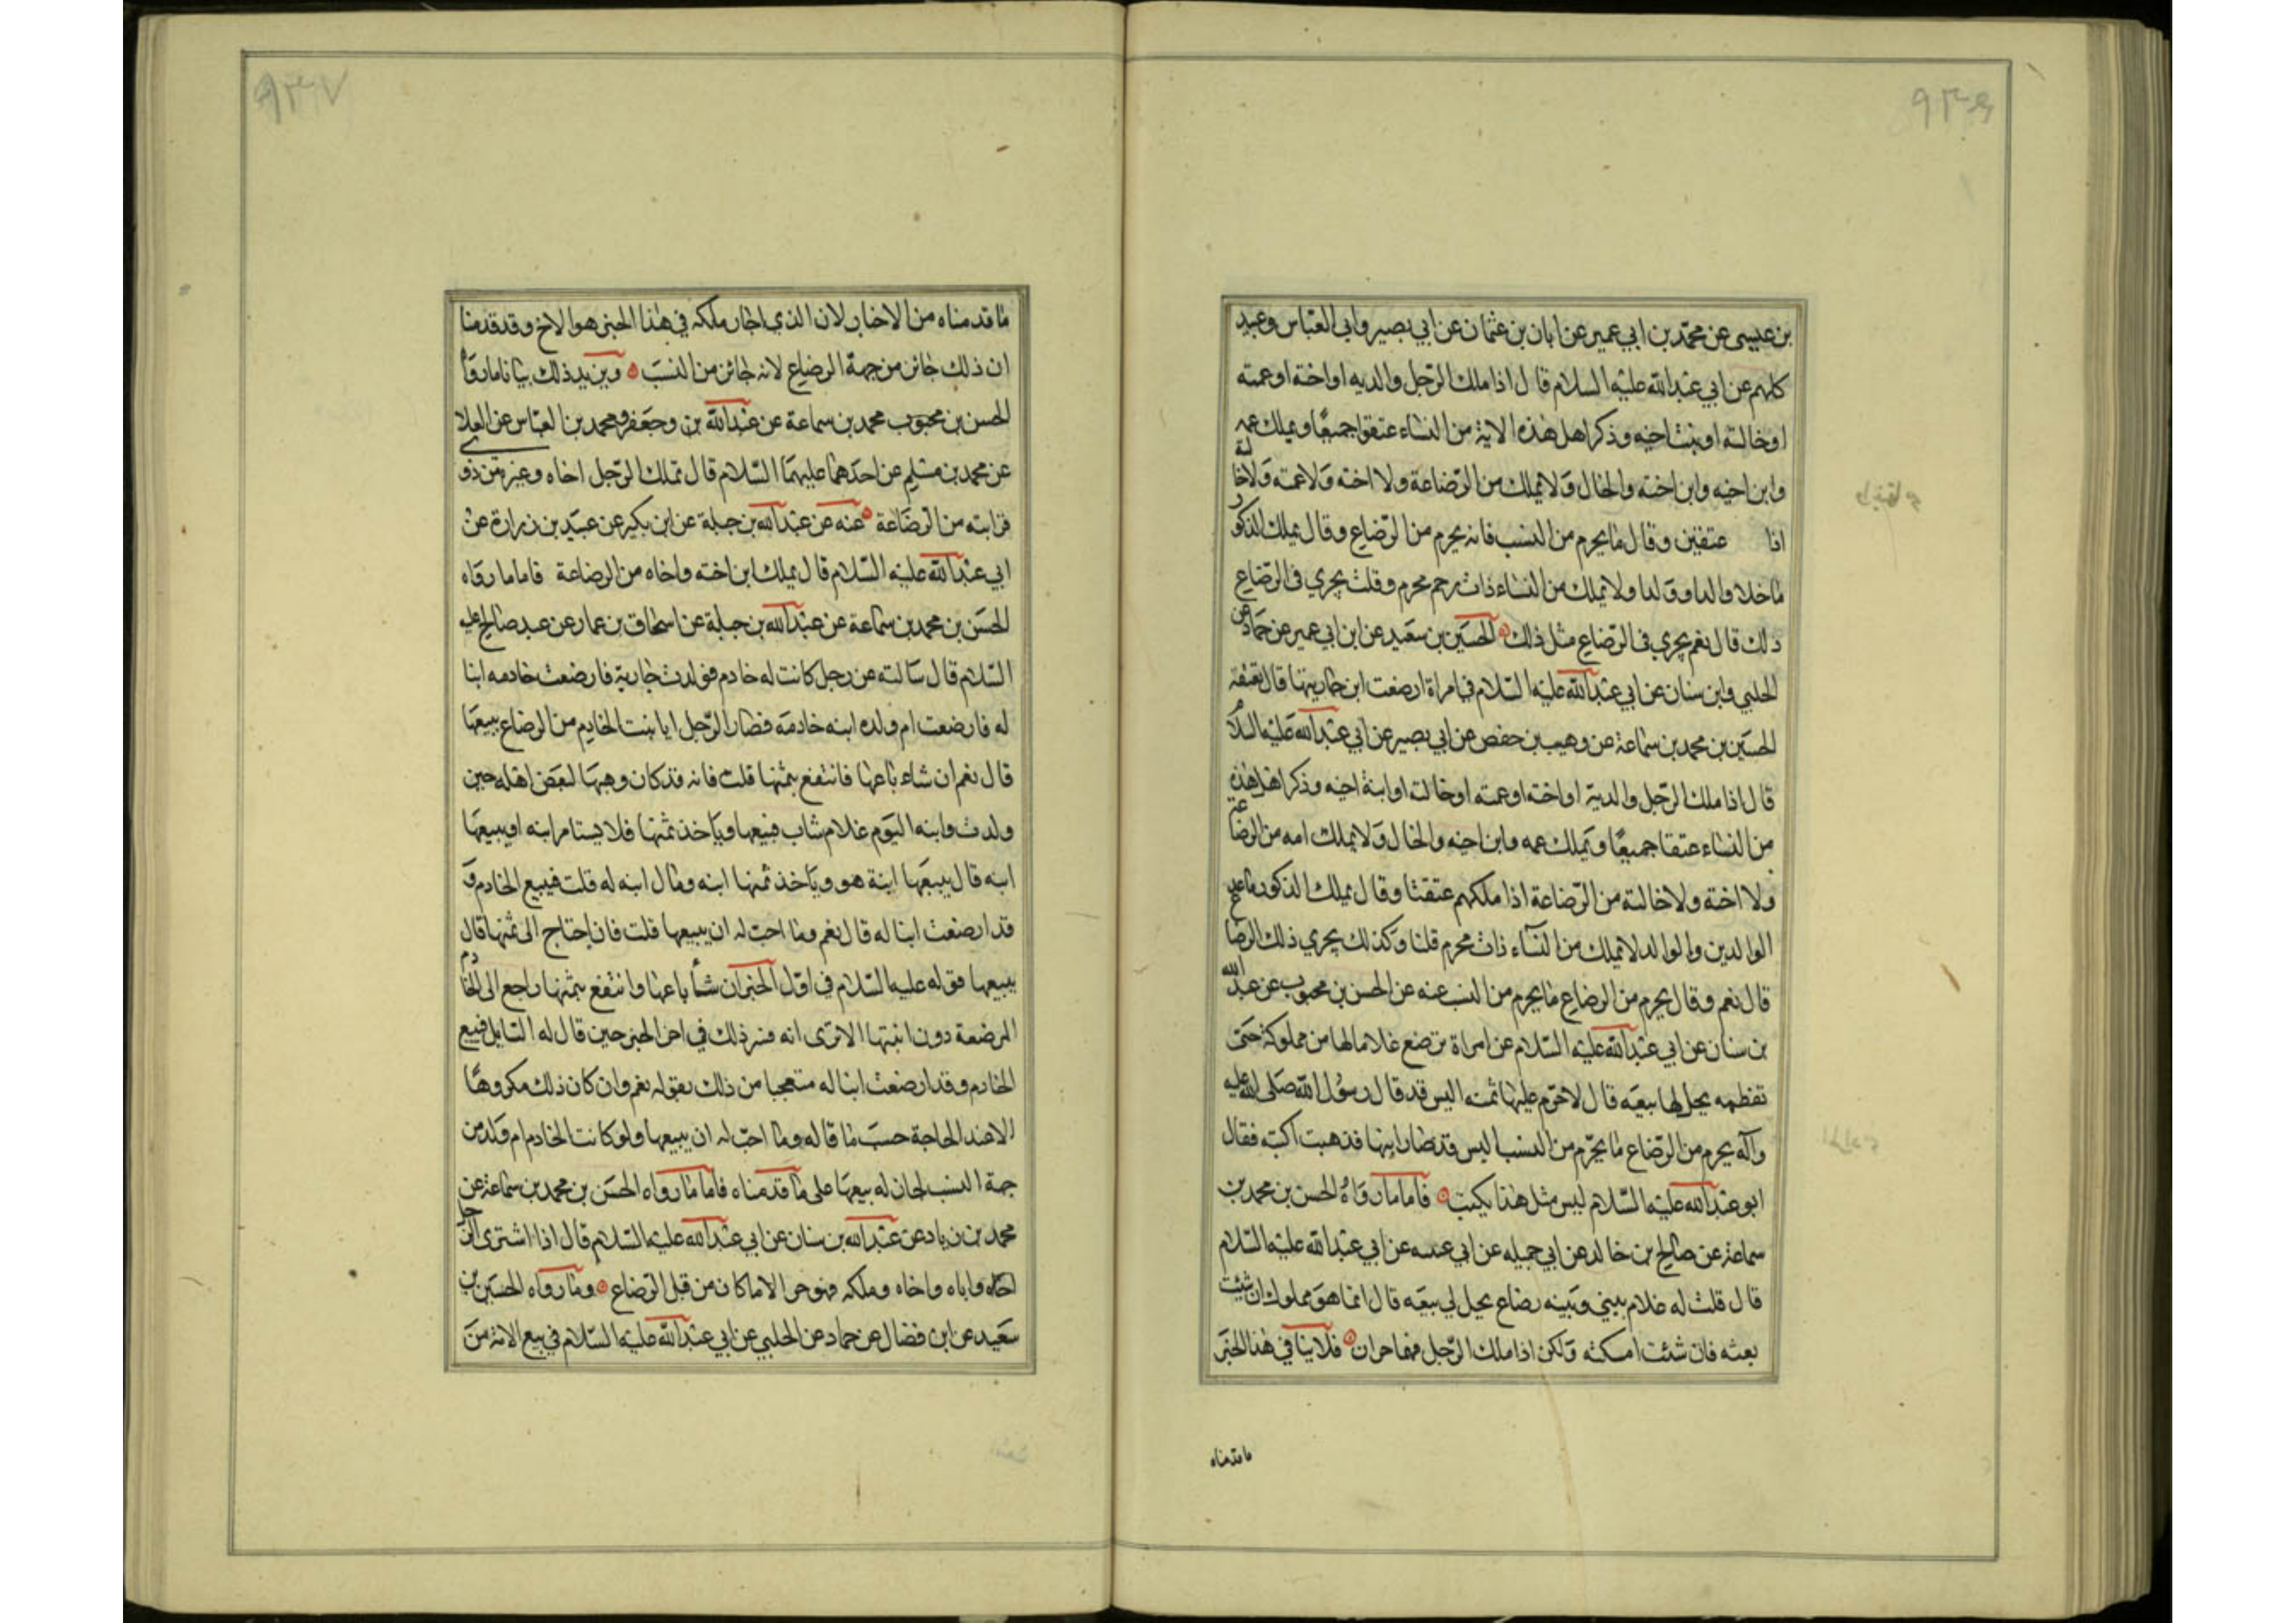 ٩٣٦
بن عيسى عن محمد بن ابي عمير عن ابان بن عثمان عن ابي بصير وابي العباس وعبيد
كلهم عن ابي عبد الله عليه السلام قال اذا ملك الرجل والديه او اخته او عمته
او خالته او بنت اخيه وذكر اهل هذه الاية من النساء عتقوا جميعا ويملك عمه
وابن اخيه وابن اخته والخال ولا يملك من الرضاعة ولا اخته ولا عمته ولا خالته
اذا عتقين وقال ما يحرم من النسب فانه يحرم من الرضاع وقال يملك الذكور
ما خلا والدا وولدا ولا يملك من النساء ذات رحم محرم وقلت يجري في الرضاع
ذلك قال نعم يجري في الرضاع مثل ذلك الحسين بن سعيد عن ابن ابي عمير عن حماد عن
الحلبي وابن سنان عن ابي عبد الله عليه السلام في امراة ارضعت ابن جاريتها قال تعتقه
الحسين بن محمد بن سماعة عن وهيب بن حفص عن ابي بصير عن ابي عبد الله عليه السلام
قال اذا ملك الرجل والديه او اخته او عمته او خالته او ابنة اخيه وذكر اهل هذه
من النساء عتقا جميعا ويملك عمه وابن اخيه والخال ولا يملك امه من الرضاعة
ولا اخته ولا خالته من الرضاعة اذا ملكهم عتقتا وقال يملك الذكور ما عدا
الوالدين والوالد لا يملك من النساء ذات محرم قلنا وكذلك يجري ذلك الرضا
قال نعم وقال يحرم من الرضاع ما يحرم من النسب عنه عن الحسن بن محبوب عن عبد الله
بن سنان عن ابي عبد الله عليه السلام عن امراة ترضع غلاما لها من مملوكة حتى
تفطمه يحل لها بيعه قال لا حرم عليها ثمنه اليس قد قال رسول الله صلى الله عليه
وآله يحرم من الرضاع ما يحرم من النسب اليس قد صار ابنها فذهبت اكتبه فقال
ابو عبد الله عليه السلام ليس مثل هذا يكتب فاما ما رواه الحسن بن محمد بن
سماعة عن صالح بن خالد عن ابي جميله عن ابي عبد الله عليه السلام
قال قلت له غلام بيني وبينه رضاع يحل لي بيعه قال انما هو مملوك ان شئت
بعته فان شئت امسكته ولكن اذا ملك الرجل فهما حران فلا ينافي هذا الخبر
ما قدمناه
٩٣٧
ما قدمناه من الاخبار لان الذي اجاز ملكه في هذا الخبر هو الاخ وقد قدمنا
ان ذلك جائز من جهة الرضاع لانه جائز من النسب ويزيد ذلك بيانا ما رواه
الحسن بن محبوب محمد بن سماعة عن عبد الله بن وجعفر ومحمد بن العباس عن العلا
عن محمد بن مسلم عن احدهما عليهما السلام قال تملك الرجل اخاه وغيره من ذوي
قرابته من الرضاعة عنه عن عبد الله بن جبلة عن ابن بكير عن عبيد بن زرارة عن
ابي عبد الله عليه السلام قال يملك ابن اخته واخاه من الرضاعة فاما ما رواه
الحسن بن محمد بن سماعة عن عبد الله بن جبلة عن اسحاق بن عمار عن عبد صالح عليه
السلام قال سالته عن رجل كانت له خادم فولدت جارية فارضعت خادمه ابنا
له فارضعت ام ولده ابنه خادمه فصار الرجل ابا بنت الخادم من الرضاع يبيعها
قال نعم ان شاء باعها فانتفع بثمنها قلت فانه قد كان وهبها لبعض اهله حين
ولدت وابنه اليوم غلام شاب فيبيعها وياخذ ثمنها فلا يستامر ابنه او يبيعها
ابنه قال يبيعها ابنة هو وياخذ ثمنها ابنه ومال ابنه له قلت فيبيع الخادم و
قد ارضعت ابنا له قال نعم وما احب له ان يبيعها قلت فان احتاج الى ثمنها قال
يبيعها فقوله عليه السلام في اول الخبر ان شاء باعها وانتفع بثمنها راجع الى الخادم
المرضعة دون ابنتها الا ترى انه فسر ذلك في اخر الخبر حين قال له السايل فيبيع
الخادم وقد ارضعت ابنا له متعجبا من ذلك بقوله نعم وان كان ذلك مكروها
الا عند الحاجة حسب ما قاله وما احب له ان يبيعها ولو كانت الخادم ام ولد من
جهة النسب لجاز له بيعها على ما قدمناه فاما ما رواه الحسن بن محمد بن سماعة عن
محمد بن زياد عن عبد الله بن سنان عن ابي عبد الله عليه السلام قال اذا اشترى الرجل
اباه واخاه وملكه فهو حر الا ما كان من قبل الرضاع وما رواه الحسين بن
سعيد عن ابن فضال عن حماد عن الحلبي عن ابي عبد الله عليه السلام في بيع الام من